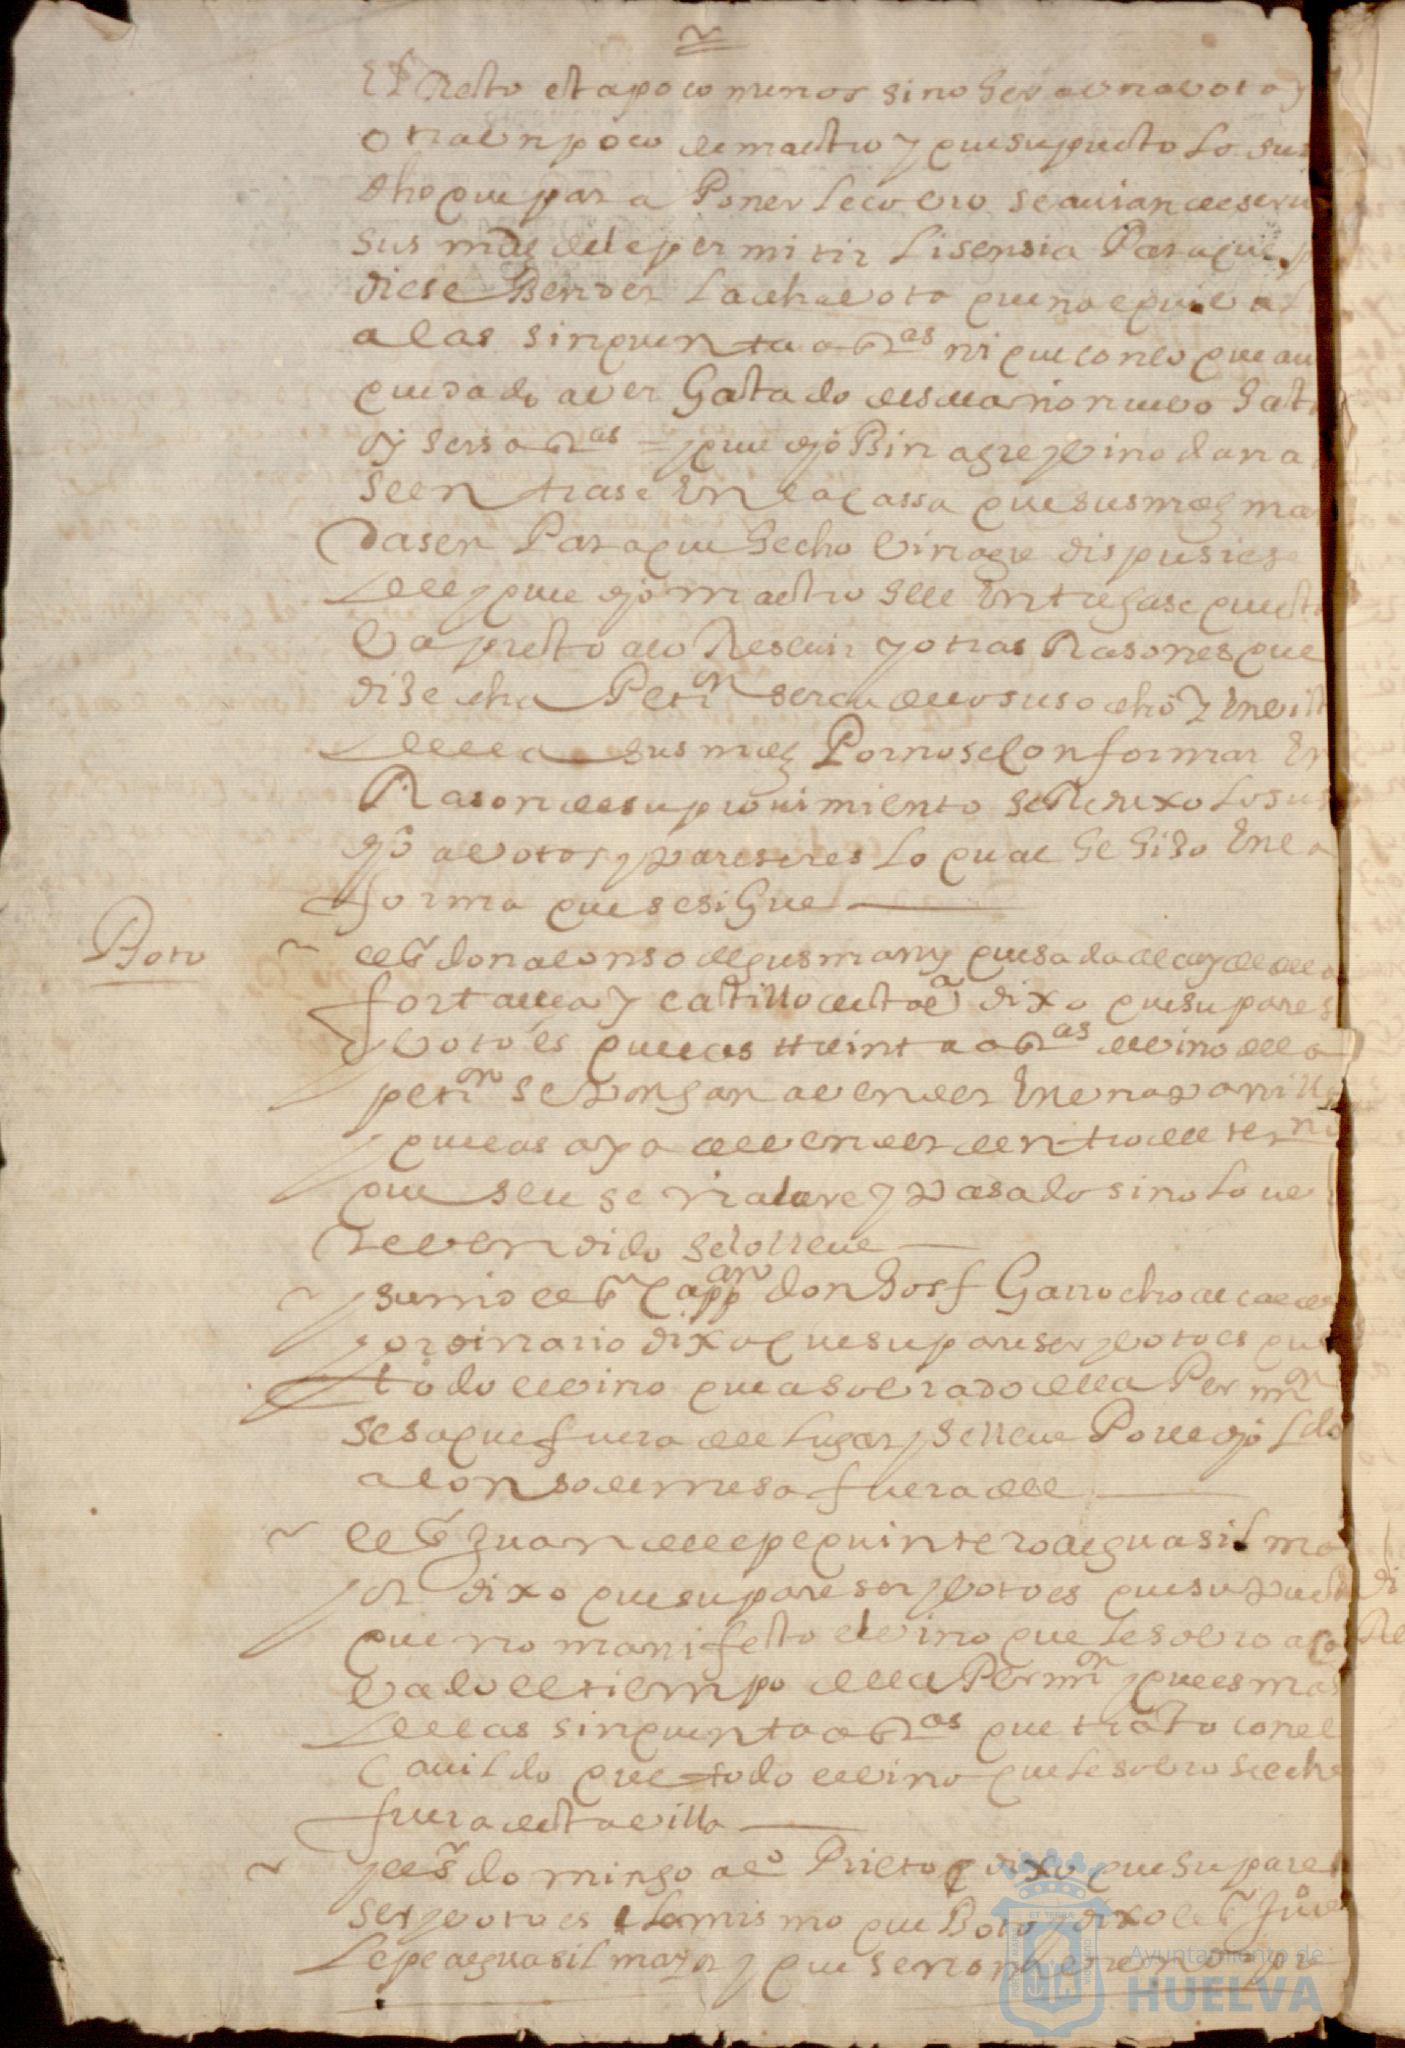 El Resto esta poco menos sino ser a una vota y
otra un poco de mactro y que supuesto lo sus
dho que para Poner le cobro se auian de serui
sus mds de le permitir Lisensia Para que pu
diese Bender La dha vota que no equiual
a las sinquenta abras ni que con lo que au
quedado aver Gastado desde año nuevo hasta
oy seis abras = y que dho Binagre y vino dana
se entrase En la cassa que sus mds man
dasen Para que hecho Vinagre dispusiese
del y que dho mactro se le Entregase que est
va presto a lo Resevir y otras Rasones que
dise dha Petion serca de lo suso dho y En vista
de ella sus mds Por no se Conformar En
Rason de su prouimiento se Reduxo lo sus
dho a votos y pareseres Lo qual se hiso En la
forma que se sigue
Boto
el sr don alonso de gusman y quesada alcayde de la
fortalesa y castillo desta va dixo que su pares
y voto es que las treinta abras de vino de la
petion se pongan a vender En una vanilla
y que las aya de vender dentro de le termi
que se le señalare y pasado sino lo ue
re vendido se lo lleue
y su md el sr Cappan don Josf Garrocho alcalde
y ordinario dixo que su pareser y voto es que
todo el vino que a sobrado de la Permion
se saque fuera del Lugar y se lleue Por el dho Ldo
alonso de mesa fuera del
el sr Juan de lepe quintero alguasil ma
yor dixo que su pareser y voto es que supuesto
que no manifesto el vino que le sobro aca
vado el tiempo de la Permion y que es mas
de las sinquenta abras que trato con el
Cauildo que todo el vino que le sobro se eche
fuera desta villa
y el sr domingo alo Prieto dixo que su pare
ser y voto es lo mismo que Boto y dixo el sr Juo de
Lepe alguasil mayor y que se
Ayuntamiento de
HUELVA